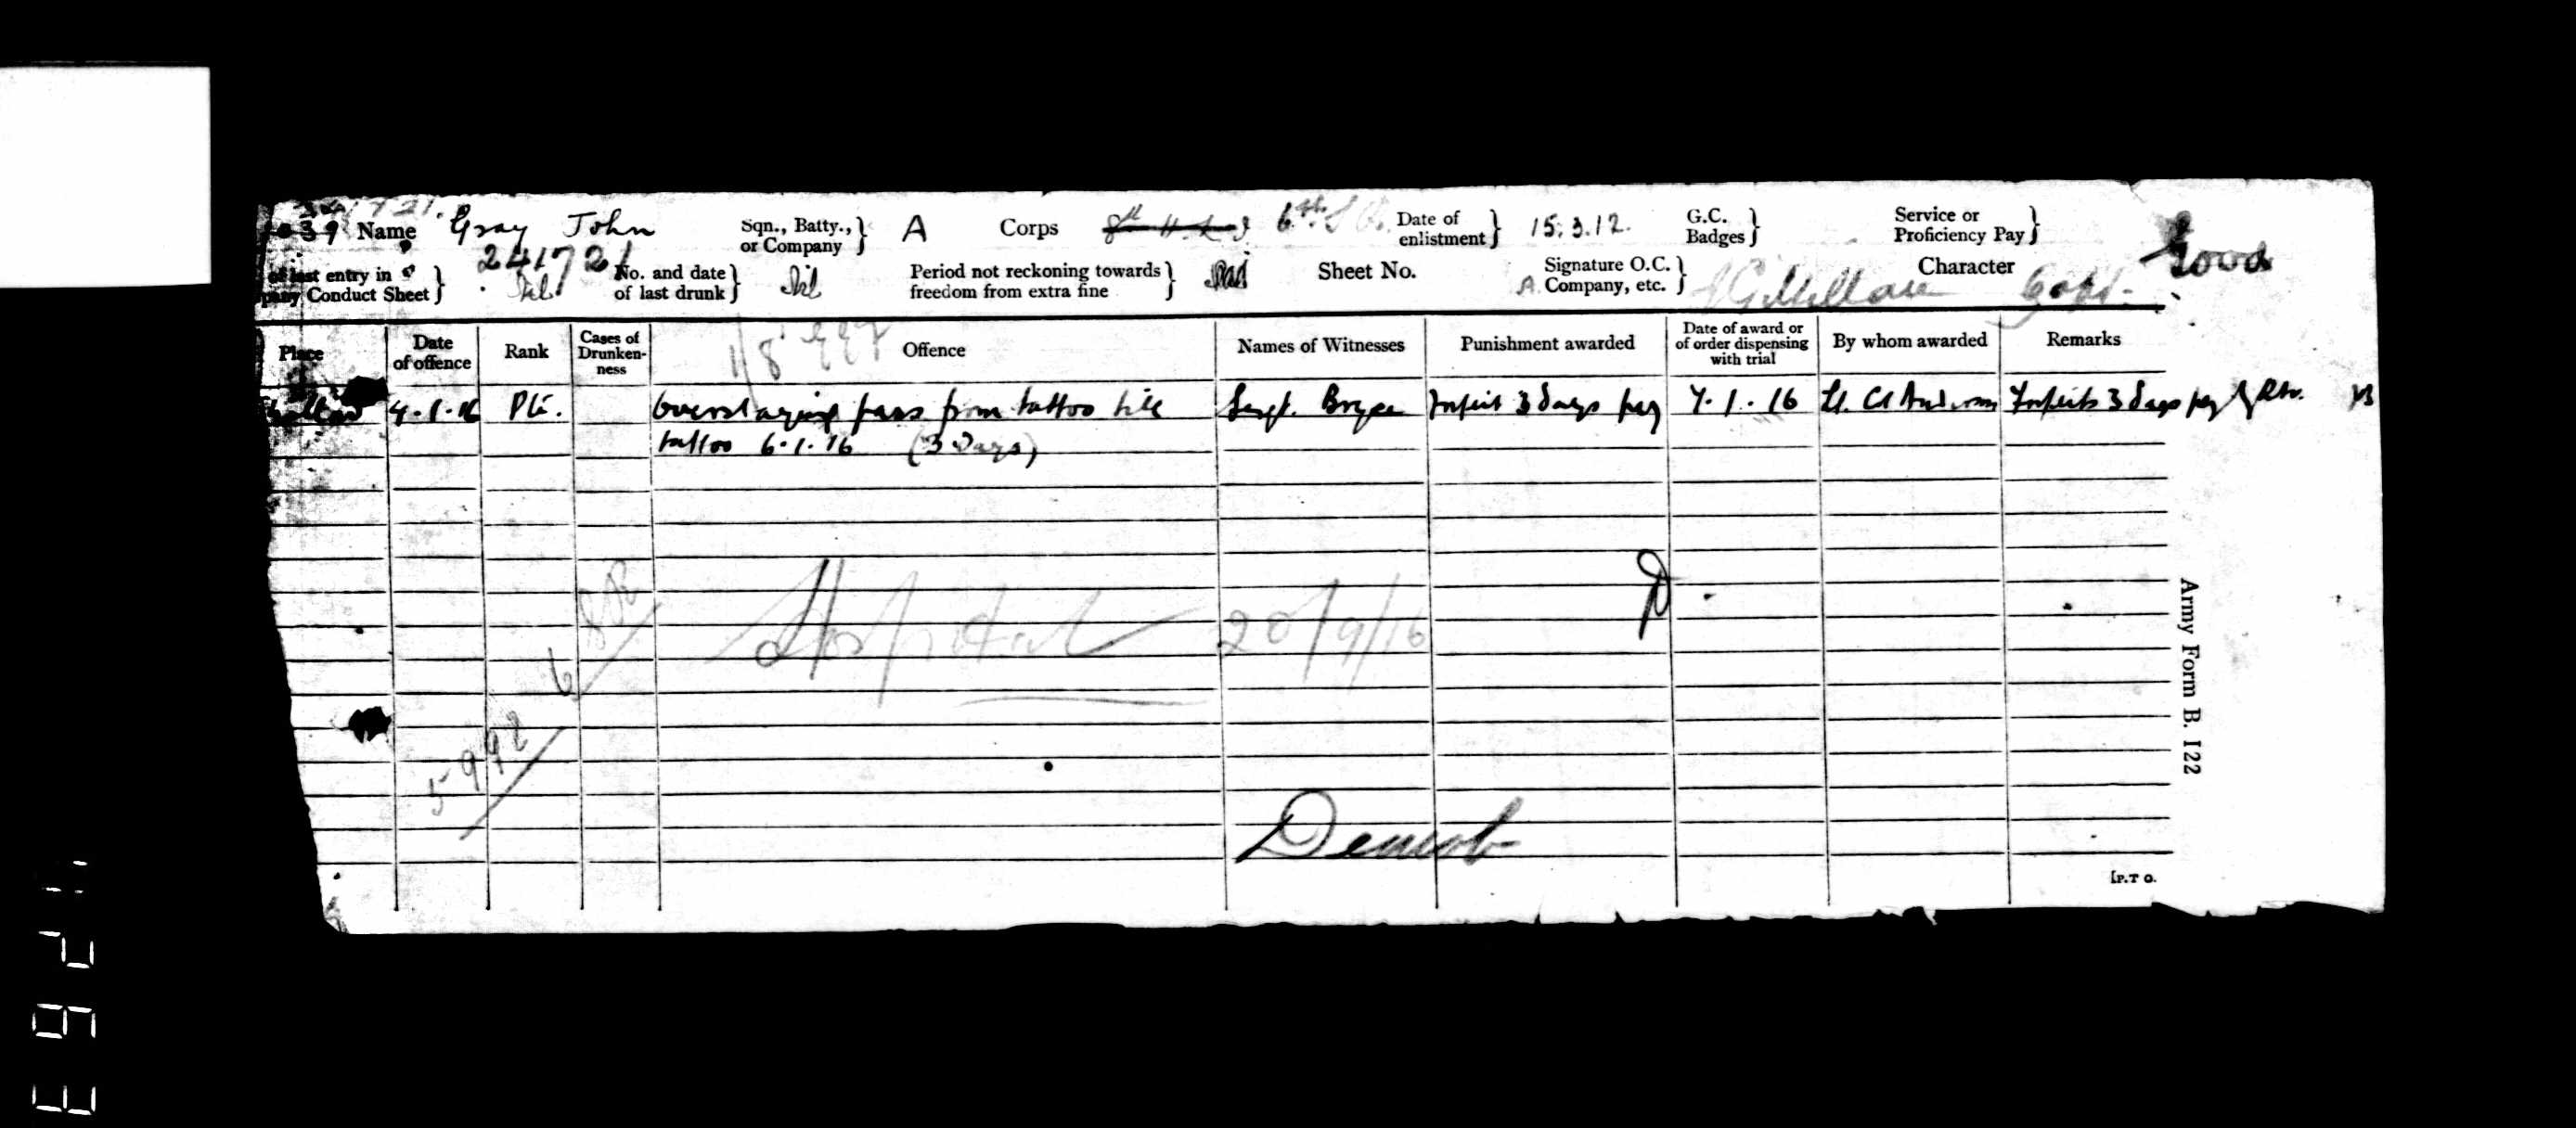 39 Name Gray John Sqn., Batty., or Company } A Corps 6th Date of enlistment } 15.3.12. G.C. Badges } Service or Proficiency Pay }
241721
of last entry in Conduct Sheet } Nil No. and date of last drunk } Nil Period not reckoning towards freedom from extra fine } Sheet No. A Signature O.C. Company, etc. } Capt. Character Good
Place Date of offence Rank Cases of Drunken-ness Offence Names of Witnesses Punishment awarded Date of award or of order dispensing with trial By whom awarded Remarks
4.1.16 Pte. Overstaying pass from tattoo till Sergt. Bryce Forfeit 3 days pay 7.1.16 Lt. Col Anderson Forfeits 3 days pay by R.W.
tattoo 6.1.16 (3 days)
D
Hospital 20/9/16
5992
Demob
[P.T O.
Army Form B. 122